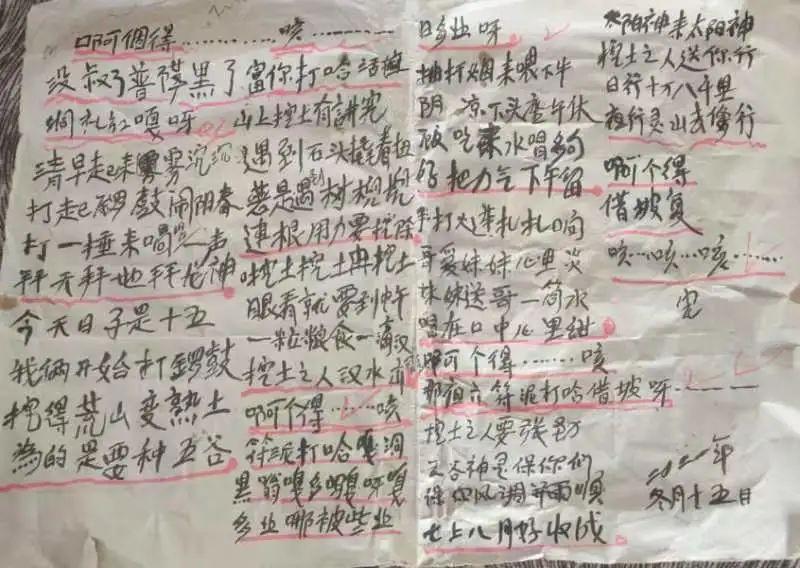 啊阿個得………咳……
没叔了普碟黑了當你打哈活
洞扎缸嘎呀
清早起来雾沉沉
打起锣鼓闹阴春
打一捶来唱一声
拜天拜地拜龙神
今天日子是十五
我俩开始打鑼鼓
挖得荒山变熟土
為的是要种五谷
山上挖土有講究
遇到石头撬着扭
若是遇到树根挖
連根用力要挖除
挖土挖土再挖土
眼看就要到中午
一粒粮食一滴汉
挖土之人汉水
啊阿个得……咳
符泥打哈嘎洞
黑翁嘎多嘎呀嘎
多业哪被些业
日多业呀
抽打烟来喂下牛
阴凉下头磨牛伏
吃来水唱多句
把力气下午留
手打火連扎扎响
哥爱妹妹心里炎
妹妹送哥一筒水
喝在口中心里甜
啊阿个得……咳
那宿六符泥打哈借坡呀……
挖土之人要
五谷神灵保你们
保你风调并雨順
七上八月好收成
太阳神来太阳神
挖土之人送你行
日行十万八千里
夜行灵山去修行
啊阿个得
借坡复
咳…咳…咳……
完
二〇二一年
冬月十五日